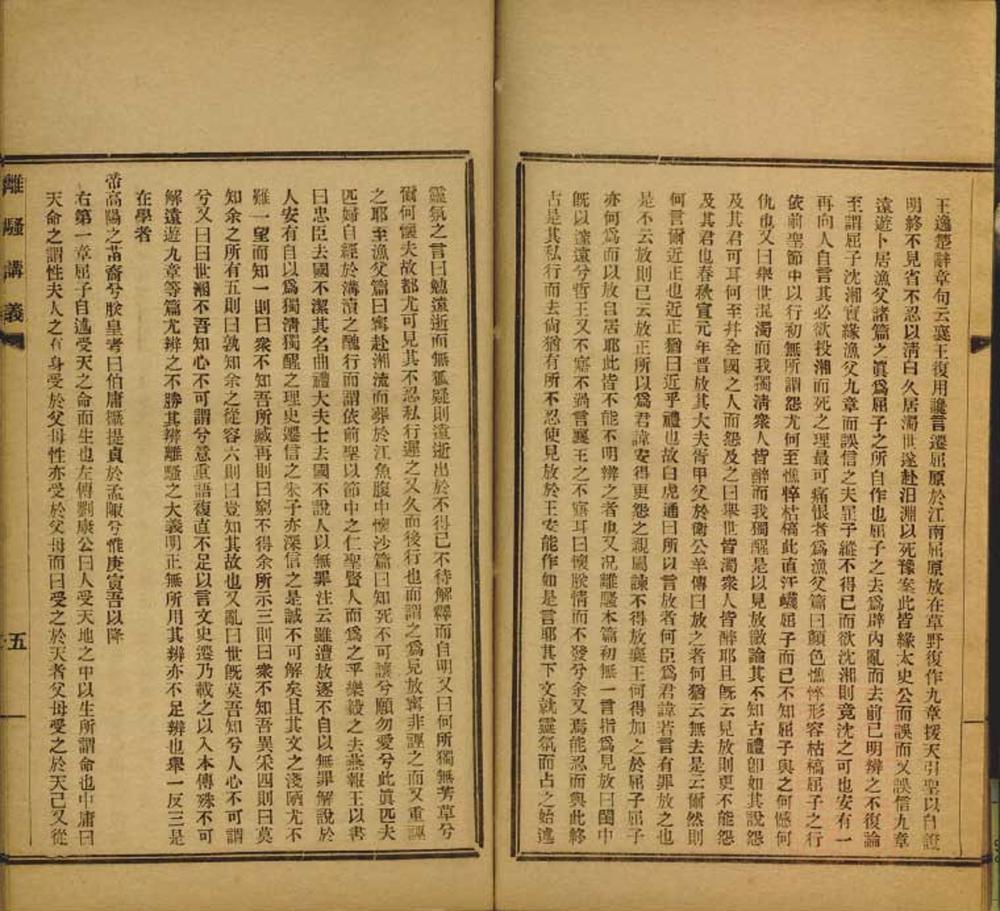 王逸楚辭章句云襄王復用讒言遷屈原於江南屈原放在草野復作九章援天引聖以自證
明終不見省不忍以清白久居濁世遂赴汨淵以死豫案此皆緣太史公而誤而又誤信九章
遠遊卜居漁父諸篇之眞爲屈子之所自作也屈子之去爲辟內亂而去前已明辨之不復論
至謂屈子沈湘實緣漁父九章而誤信之夫屈子縱不得已而欲沈湘則竟沈之可也安有一
再向人自言其必欲投湘而死之理最可痛恨者爲漁父篇曰顏色憔悴形容枯槁屈子之行
依前聖節中以行初無所謂怨尤何至憔悴枯槁此直汙衊屈子而已不知屈子與之何憾何
仇也又曰舉世混濁而我獨清衆人皆醉而我獨醒是以見放徵論其不知古禮卽如其說怨
及其君可耳何至并全國之人而怨及之曰舉世皆濁衆人皆醉耶且旣云見放則更不能怨
及其君也春秋宣元年晋放其大夫胥甲父於衛公羊傳曰放之者何猶云無去是云爾然則
何言爾近正也近正猶曰近乎禮也故白虎通曰所以言放者何臣爲君諱若言有罪放之也
是不云放則已云放正所以爲君諱安得更怨之親屬諫不得放襄王何得加之於屈子屈子
亦何爲而以放自居耶此皆不能不明辨之者也又况離騷本篇初無一言指爲見放曰閨中
旣以邃遠兮哲王又不寤不過言襄王之不寤耳曰懷朕情而不發兮余又焉能忍而與此終
古是其私行而去尙猶有所不忍使見放於王安能作如是言耶其下文就靈氛而占之始述
靈氛之言曰勉遠逝而無狐疑則遠逝出於不得已不待解釋而自明又曰何所獨無芳草兮
爾何懷夫故都尤可見其不忍私行遲之又久而後行也而謂之爲見放寗非誣之而又重誣
之耶至漁父篇曰寗赴湘流而葬於江魚腹中懷沙篇曰知死不可讓兮願勿愛兮此眞匹夫
匹婦自經於溝瀆之醜行而謂依前聖以節中之仁聖賢人而爲之乎樂毅之去燕報王以書
曰忠臣去國不潔其名曲禮大夫士去國不說人以無罪注云雖遭放逐不自以無罪解說於
人安有自以爲獨清獨醒之理史遷信之朱子亦深信之是誠不可解矣且其文之淺陋尤不
難一望而知一則曰衆不知吾所臧再則曰窮不得余所示三則曰衆不知吾異采四則曰莫
知余之所有五則曰孰知余之從容六則曰豈知其故也又亂曰世旣莫吾知兮人心不可謂
兮又曰曰世溷不吾知心不可謂兮意重語複直不足以言文史遷乃載之以入本傳殊不可
解遠遊九章等篇尤辨之不勝其辨離騷之大義明正無所用其辨亦不足辨也舉一反三是
在學者
帝高陽之苗裔兮朕皇考曰伯庸攝提貞於孟陬兮惟庚寅吾以降
右第一章屈子自述受天之命而生也左傳劉康公曰人受天地之中以生所謂命也中庸曰
天命之謂性夫人之有身受於父母性亦受於父母而曰受之於天者父母受之於天己又從
離騷講義
五